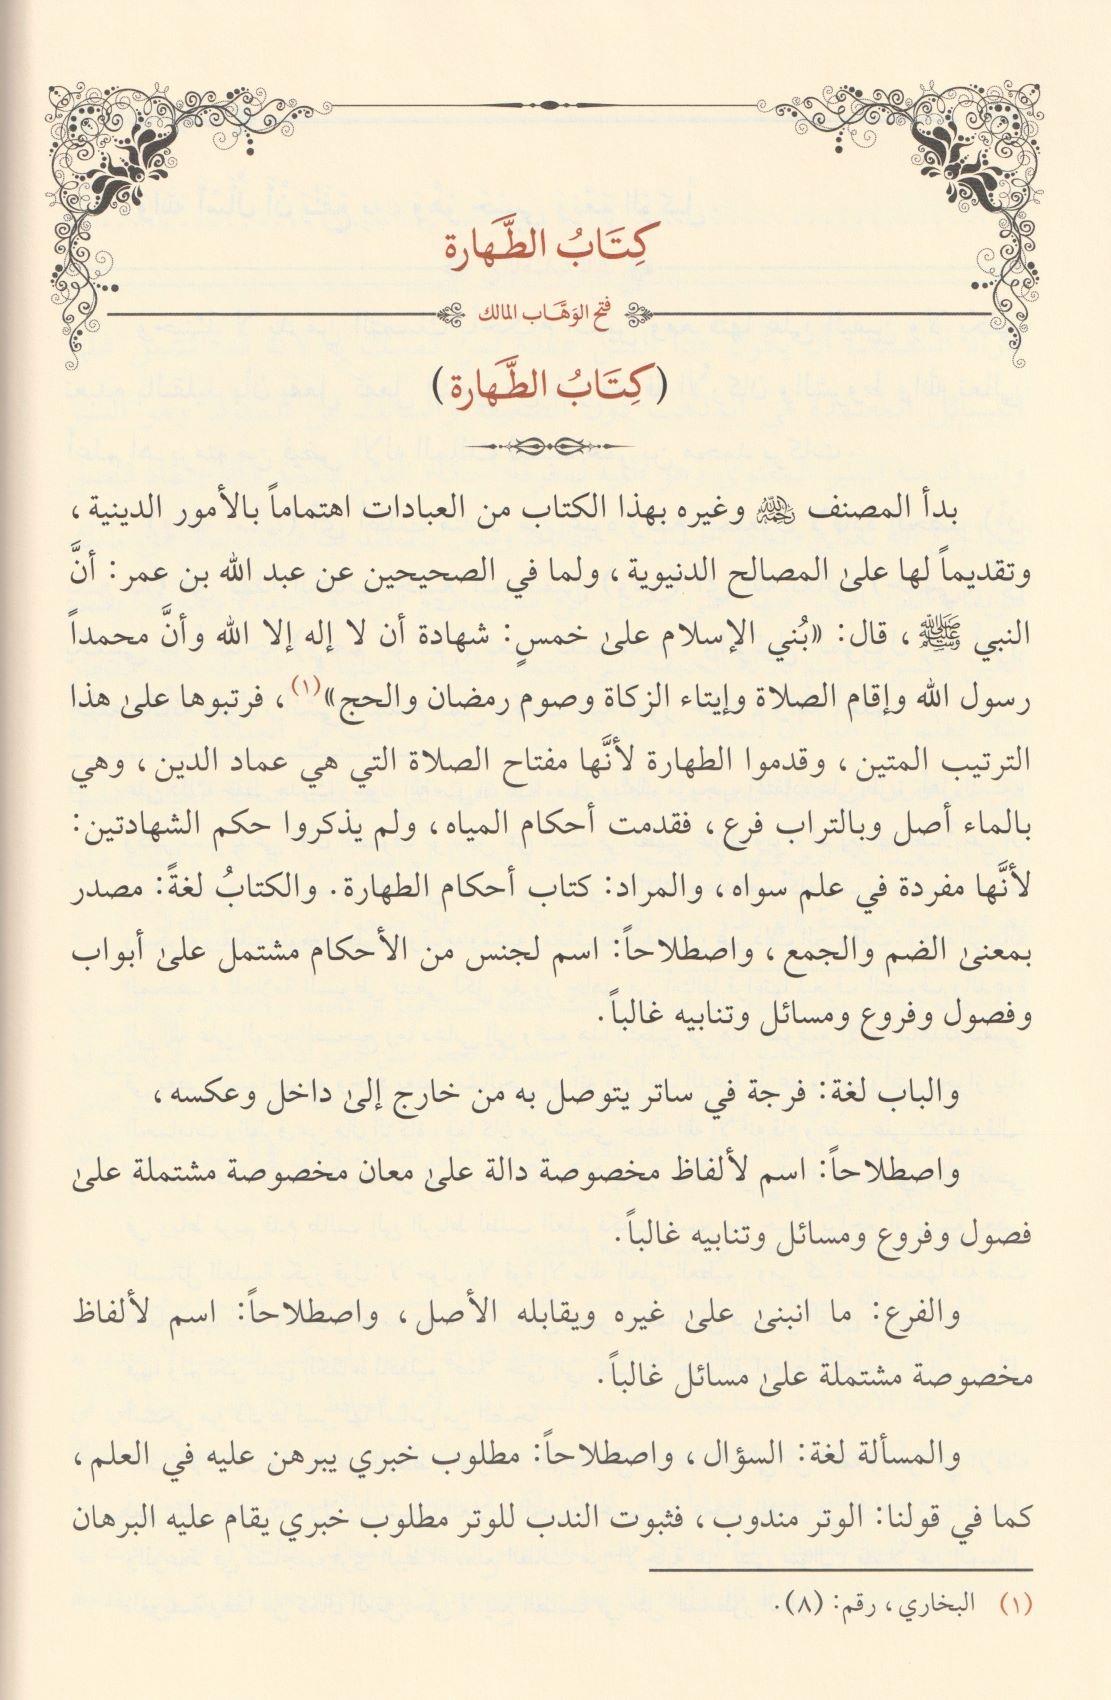 كِتَابُ الطَّهارة
فتح الوَهَّاب المالك
(كِتَابُ الطَّهارة)
بدأ المصنف رحمه الله وغيره بهذا الكتاب من العبادات اهتماماً بالأمور الدينية،
وتقديماً لها علىٰ المصالح الدنيوية، ولما في الصحيحين عن عبد الله بن عمر: أنَّ
النبي ﷺ، قال: «بُني الإسلام علىٰ خمسٍ: شهادة أن لا إله إلا الله وأنَّ محمداً
رسول الله وإقام الصلاة وإيتاء الزكاة وصوم رمضان والحج»(١)، فرتبوها علىٰ هذا
الترتيب المتين، وقدموا الطهارة لأنَّها مفتاح الصلاة التي هي عماد الدين، وهي
بالماء أصل وبالتراب فرع، فقدمت أحكام المياه، ولم يذكروا حكم الشهادتين:
لأنَّها مفردة في علم سواه، والمراد: كتاب أحكام الطهارة. والكتابُ لغةً: مصدر
بمعنىٰ الضم والجمع، واصطلاحاً: اسم لجنس من الأحكام مشتمل علىٰ أبواب
وفصول وفروع ومسائل وتنابيه غالباً.
والباب لغة: فرجة في ساتر يتوصل به من خارج إلىٰ داخل وعكسه،
واصطلاحاً: اسم لألفاظ مخصوصة دالة علىٰ معان مخصوصة مشتملة علىٰ
فصول وفروع ومسائل وتنابيه غالباً.
والفرع: ما انبنىٰ علىٰ غيره ويقابله الأصل، واصطلاحاً: اسم لألفاظ
مخصوصة مشتملة علىٰ مسائل غالباً.
والمسألة لغة: السؤال، واصطلاحاً: مطلوب خبري يبرهن عليه في العلم،
كما في قولنا: الوتر مندوب، فثبوت الندب للوتر مطلوب خبري يقام عليه البرهان
(١) البخاري، رقم: (٨).